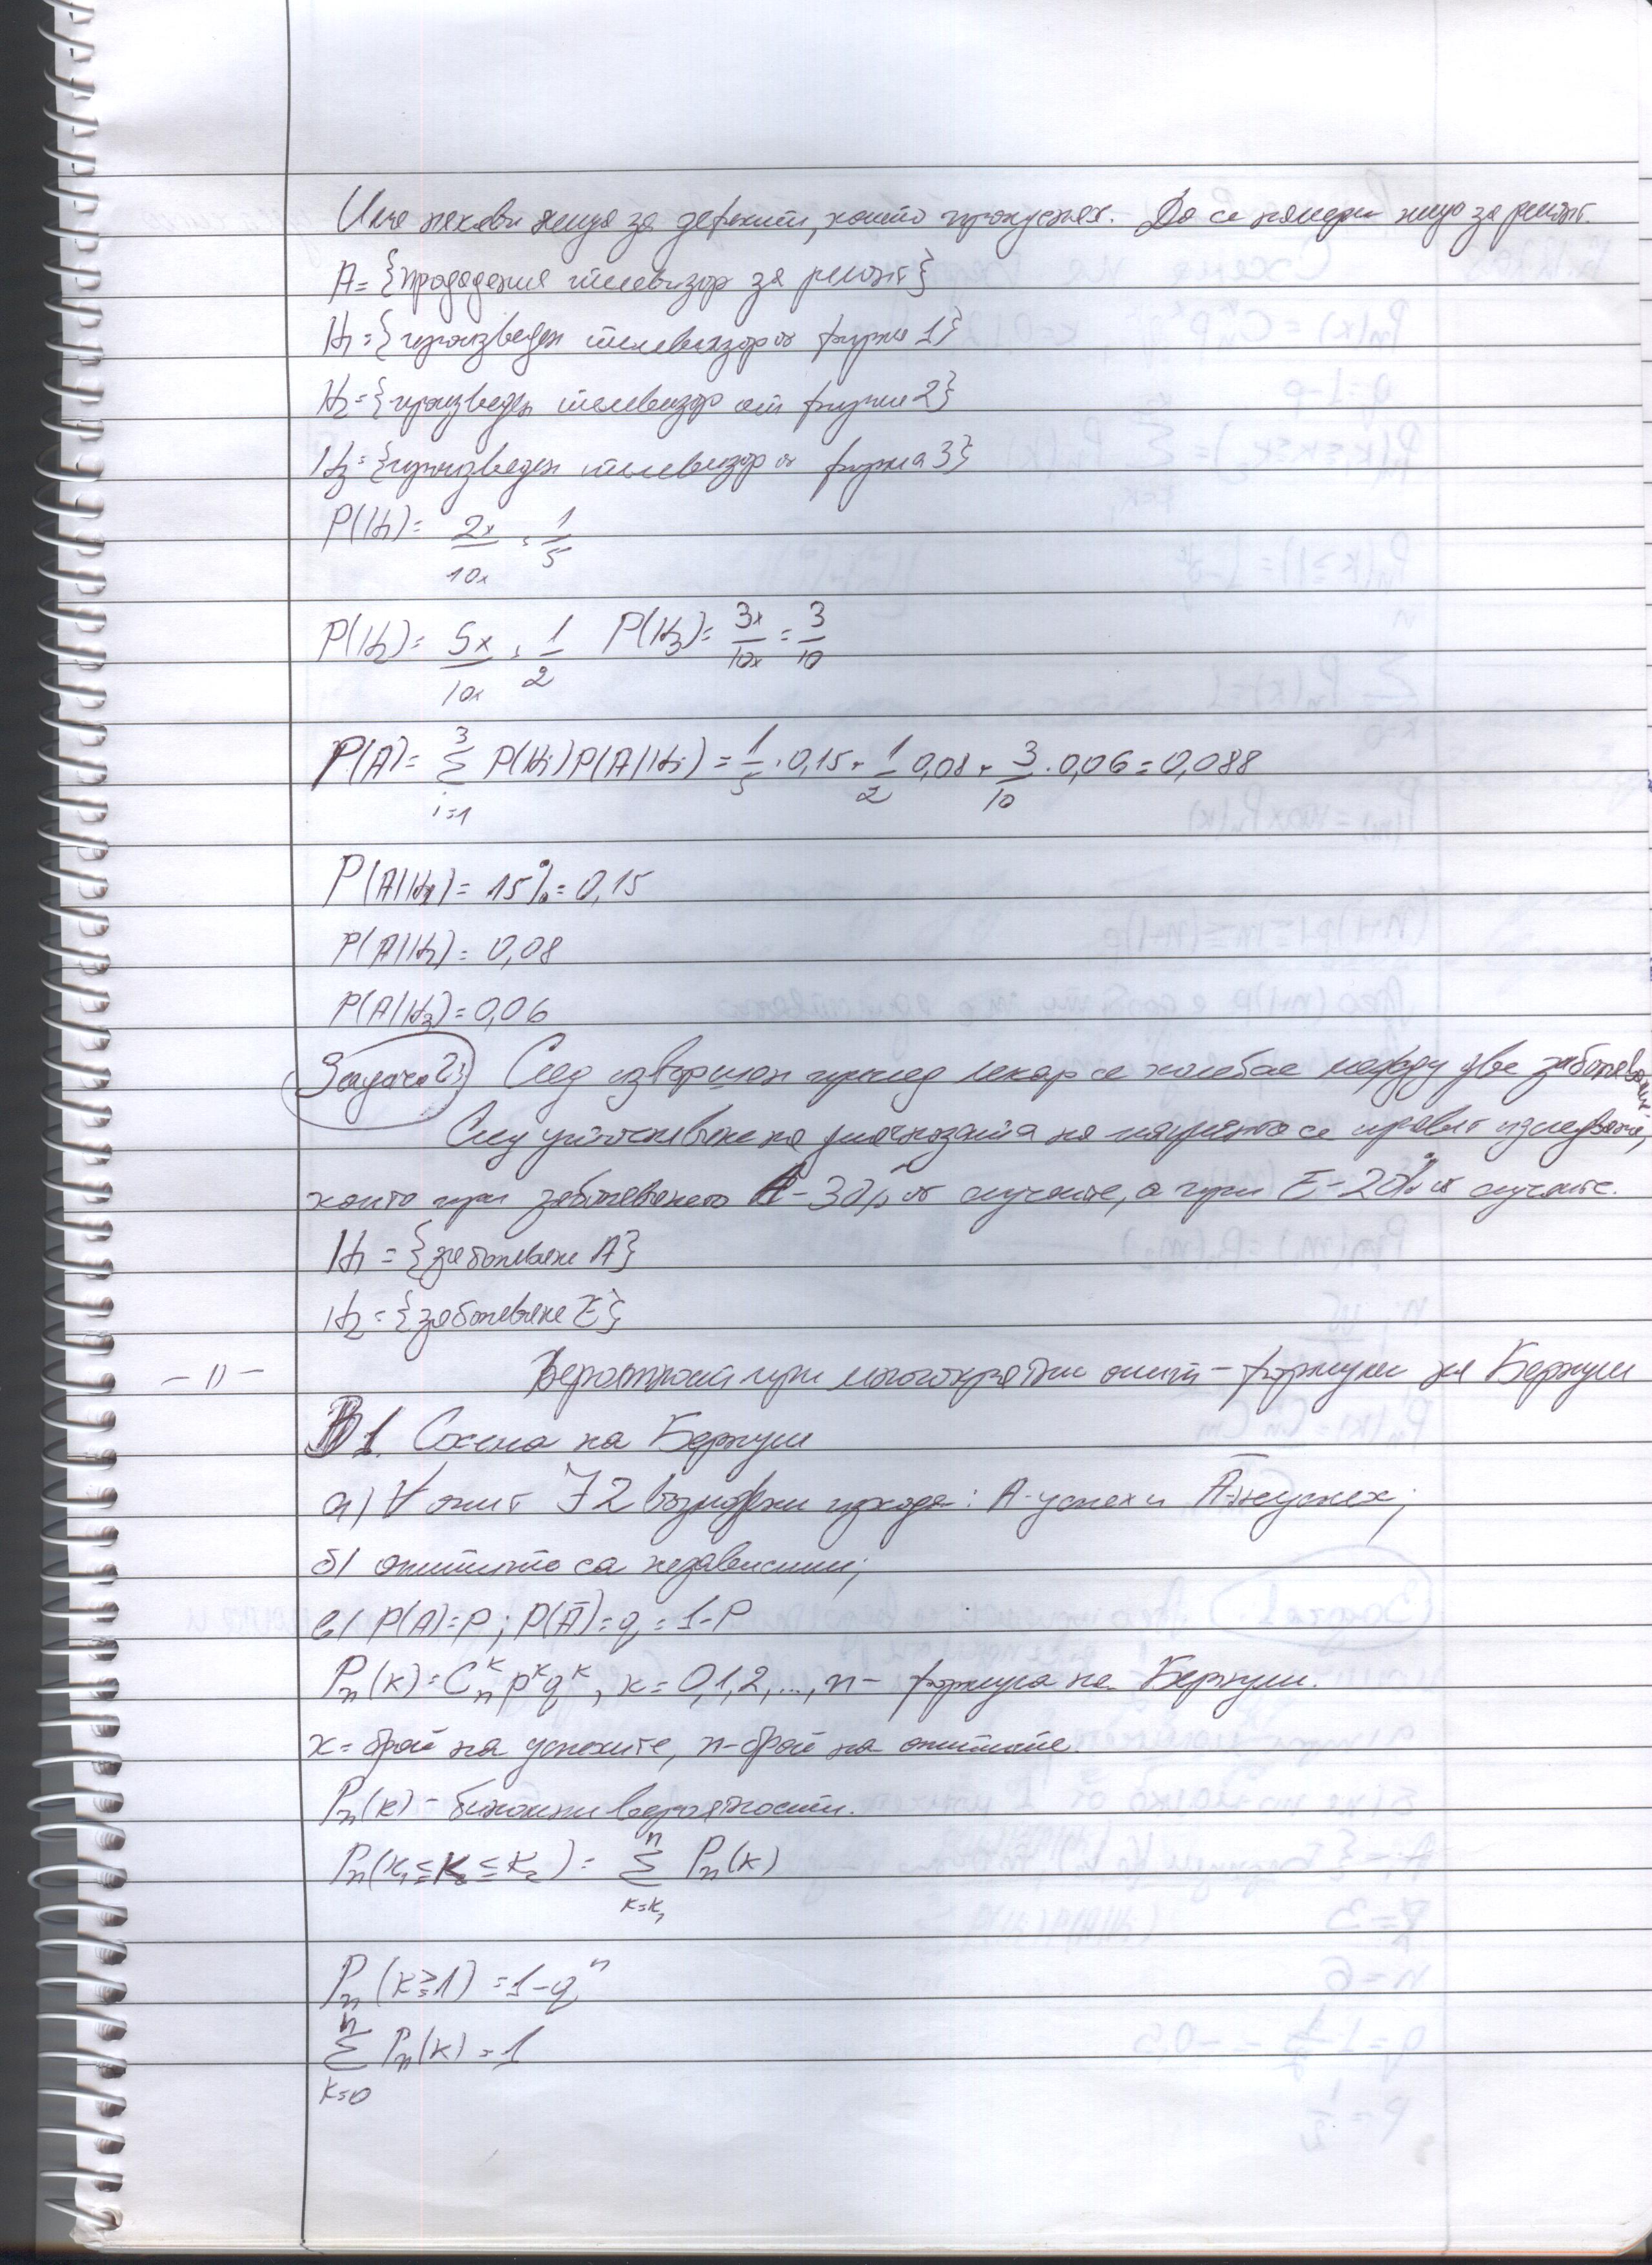 Има някакви неща за дефекти, които пропуснах. Да се намери нещо за ремонт.
A = {продадения телевизор за ремонт}
H₁ = {произведен телевизор от фирма 1}
H₂ = {произведен телевизор от фирма 2}
H₃ = {произведен телевизор от фирма 3}
P(H₁) = 2x/10x = 1/5
P(H₂) = 5x/10x = 1/2 P(H₃) = 3x/10x = 3/10
P(A) = Σ_{i=1}^{3} P(Hᵢ)P(A|Hᵢ) = 1/5 · 0,15 + 1/2 0,08 + 3/10 · 0,06 = 0,088
P(A|H₁) = 15% = 0,15
P(A|H₂) = 0,08
P(A|H₃) = 0,06
Задача 2) След извършен преглед лекар се колебае между две заболявания
След уточняване на диагнозата на пациента се правят изследвания,
които при заболяването A - 30% от случаите, а при E - 20% от случаите.
H₁ = {заболяване A}
H₂ = {заболяване E}
– 11 – Вероятности при многократни опити – формули на Бернули
В 1. Схема на Бернули
а) ∀ опит ∃ 2 възможни изхода: A - успех и Ā - неуспех;
б) опитите са независими;
в) P(A) = p; P(Ā) = q = 1-P
Pₙ(k) = Cₙᵏ pᵏ qᵏ, k = 0,1,2,...,n – формула на Бернули.
k = брой на успехите, n - брой на опитите.
Pₙ(k) - биномни вероятности.
Pₙ(k₁ ≤ k ≤ k₂) = Σ_{k=k₁}^{n} Pₙ(k)
Pₙ(k ≥ 1) = 1 - qⁿ
Σ_{k=0}^{n} Pₙ(k) = 1